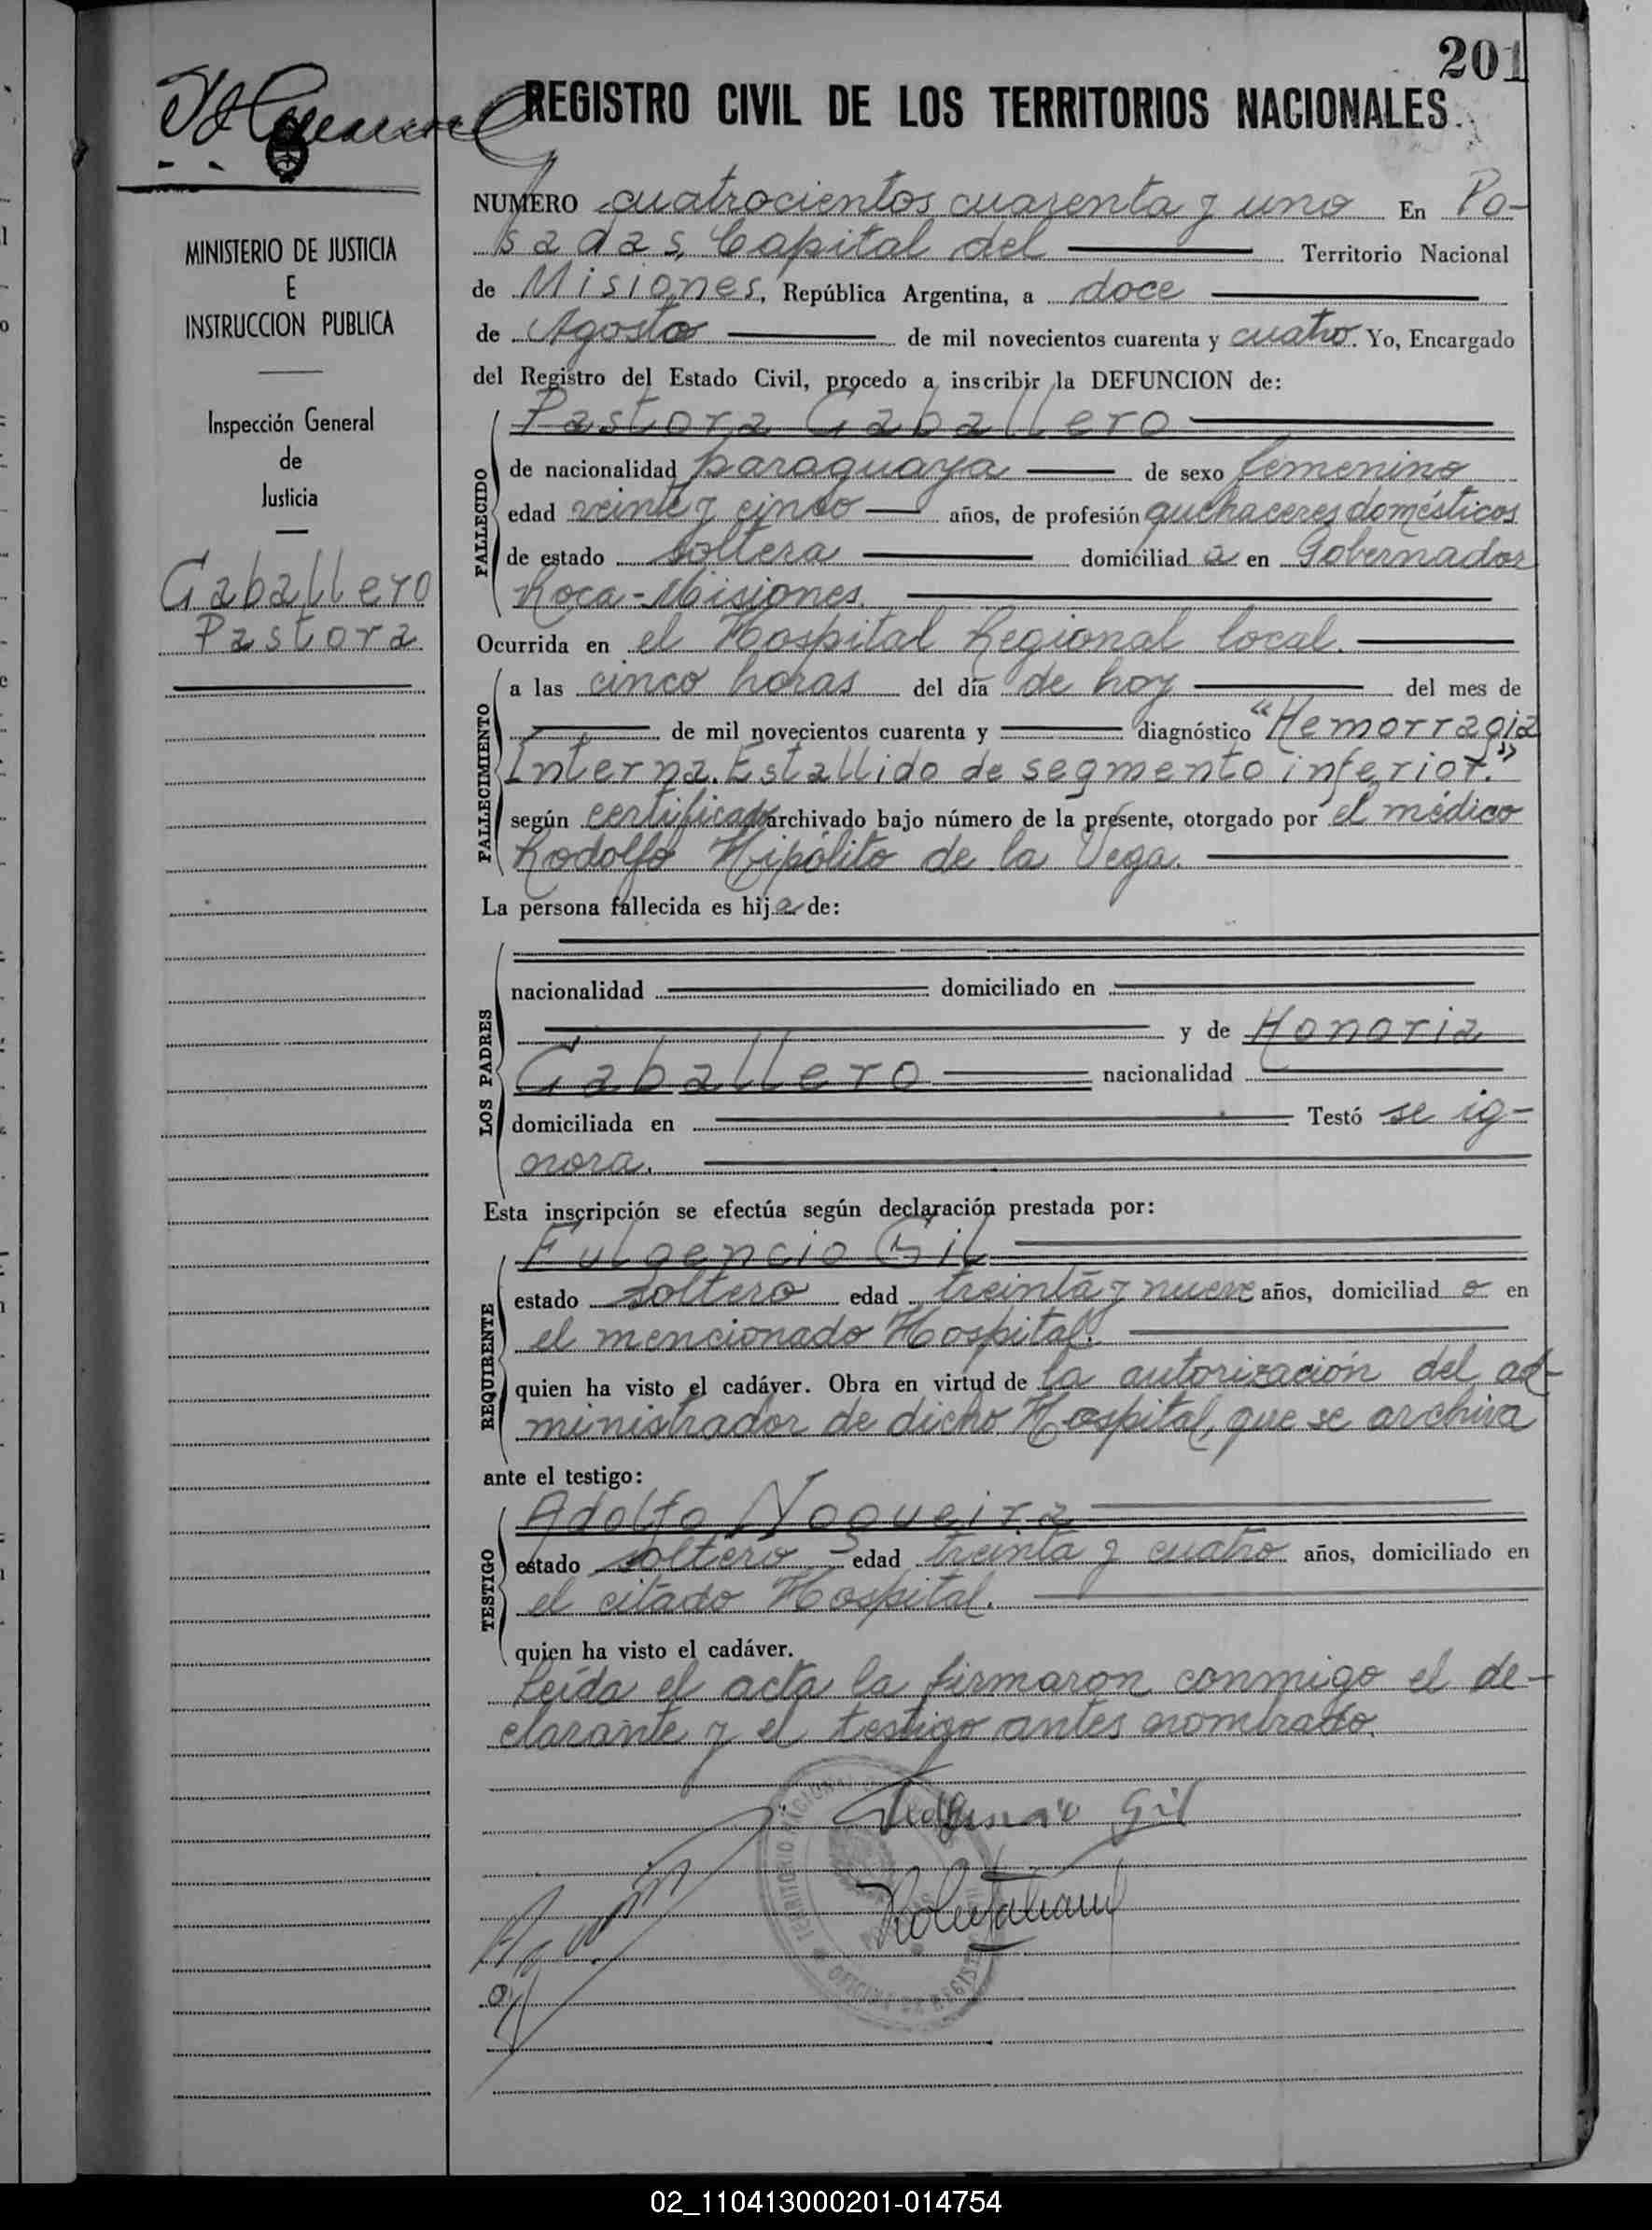 201
REGISTRO CIVIL DE LOS TERRITORIOS NACIONALES
MINISTERIO DE JUSTICIA
E
INSTRUCCION PUBLICA
Inspección General
de
Justicia
Caballero
Pastora
NUMERO cuatrocientos cuarenta y uno En Po-
sadas, Capital del Territorio Nacional
de Misiones, República Argentina, a doce
de Agosto de mil novecientos cuarenta y cuatro. Yo, Encargado
del Registro del Estado Civil, procedo a inscribir la DEFUNCION de:
FALLECIDO
Pastora Caballero
de nacionalidad paraguaya de sexo femenino
edad veinte y cinco años, de profesión quehaceres domésticos
de estado soltera domiciliad a en Gobernador
Roca-Misiones.
Ocurrida en el Hospital Regional local.
FALLECIMIENTO
a las cinco horas del día de hoy del mes de
de mil novecientos cuarenta y diagnóstico "Hemorragia
Interna. Estallido de segmento inferior."
según certificado archivado bajo número de la présente, otorgado por el médico
Rodolfo Hipólito de la Vega.
La persona fallecida es hija de:
LOS PADRES
nacionalidad domiciliado en
y de Honoria
Caballero nacionalidad
domiciliada en Testó se ig-
nora.
Esta inscripción se efectúa según declaración prestada por:
REQUIRENTE
Fulgencio Gil
estado soltero edad treinta y nueve años, domiciliad o en
el mencionado Hospital.
quien ha visto el cadáver. Obra en virtud de la autorización del ad-
ministrador de dicho Hospital, que se archiva
ante el testigo:
TESTIGO
Adolfo Nogueira
estado soltero edad treinta y cuatro años, domiciliado en
el citado Hospital.
quien ha visto el cadáver.
Leída el acta la firmaron conmigo el de-
clarante y el testigo antes nombrado.
Fulgencio Gil
TERRITORIO NACIONAL
OFICINA DE REGISTRO
02_110413000201-014754